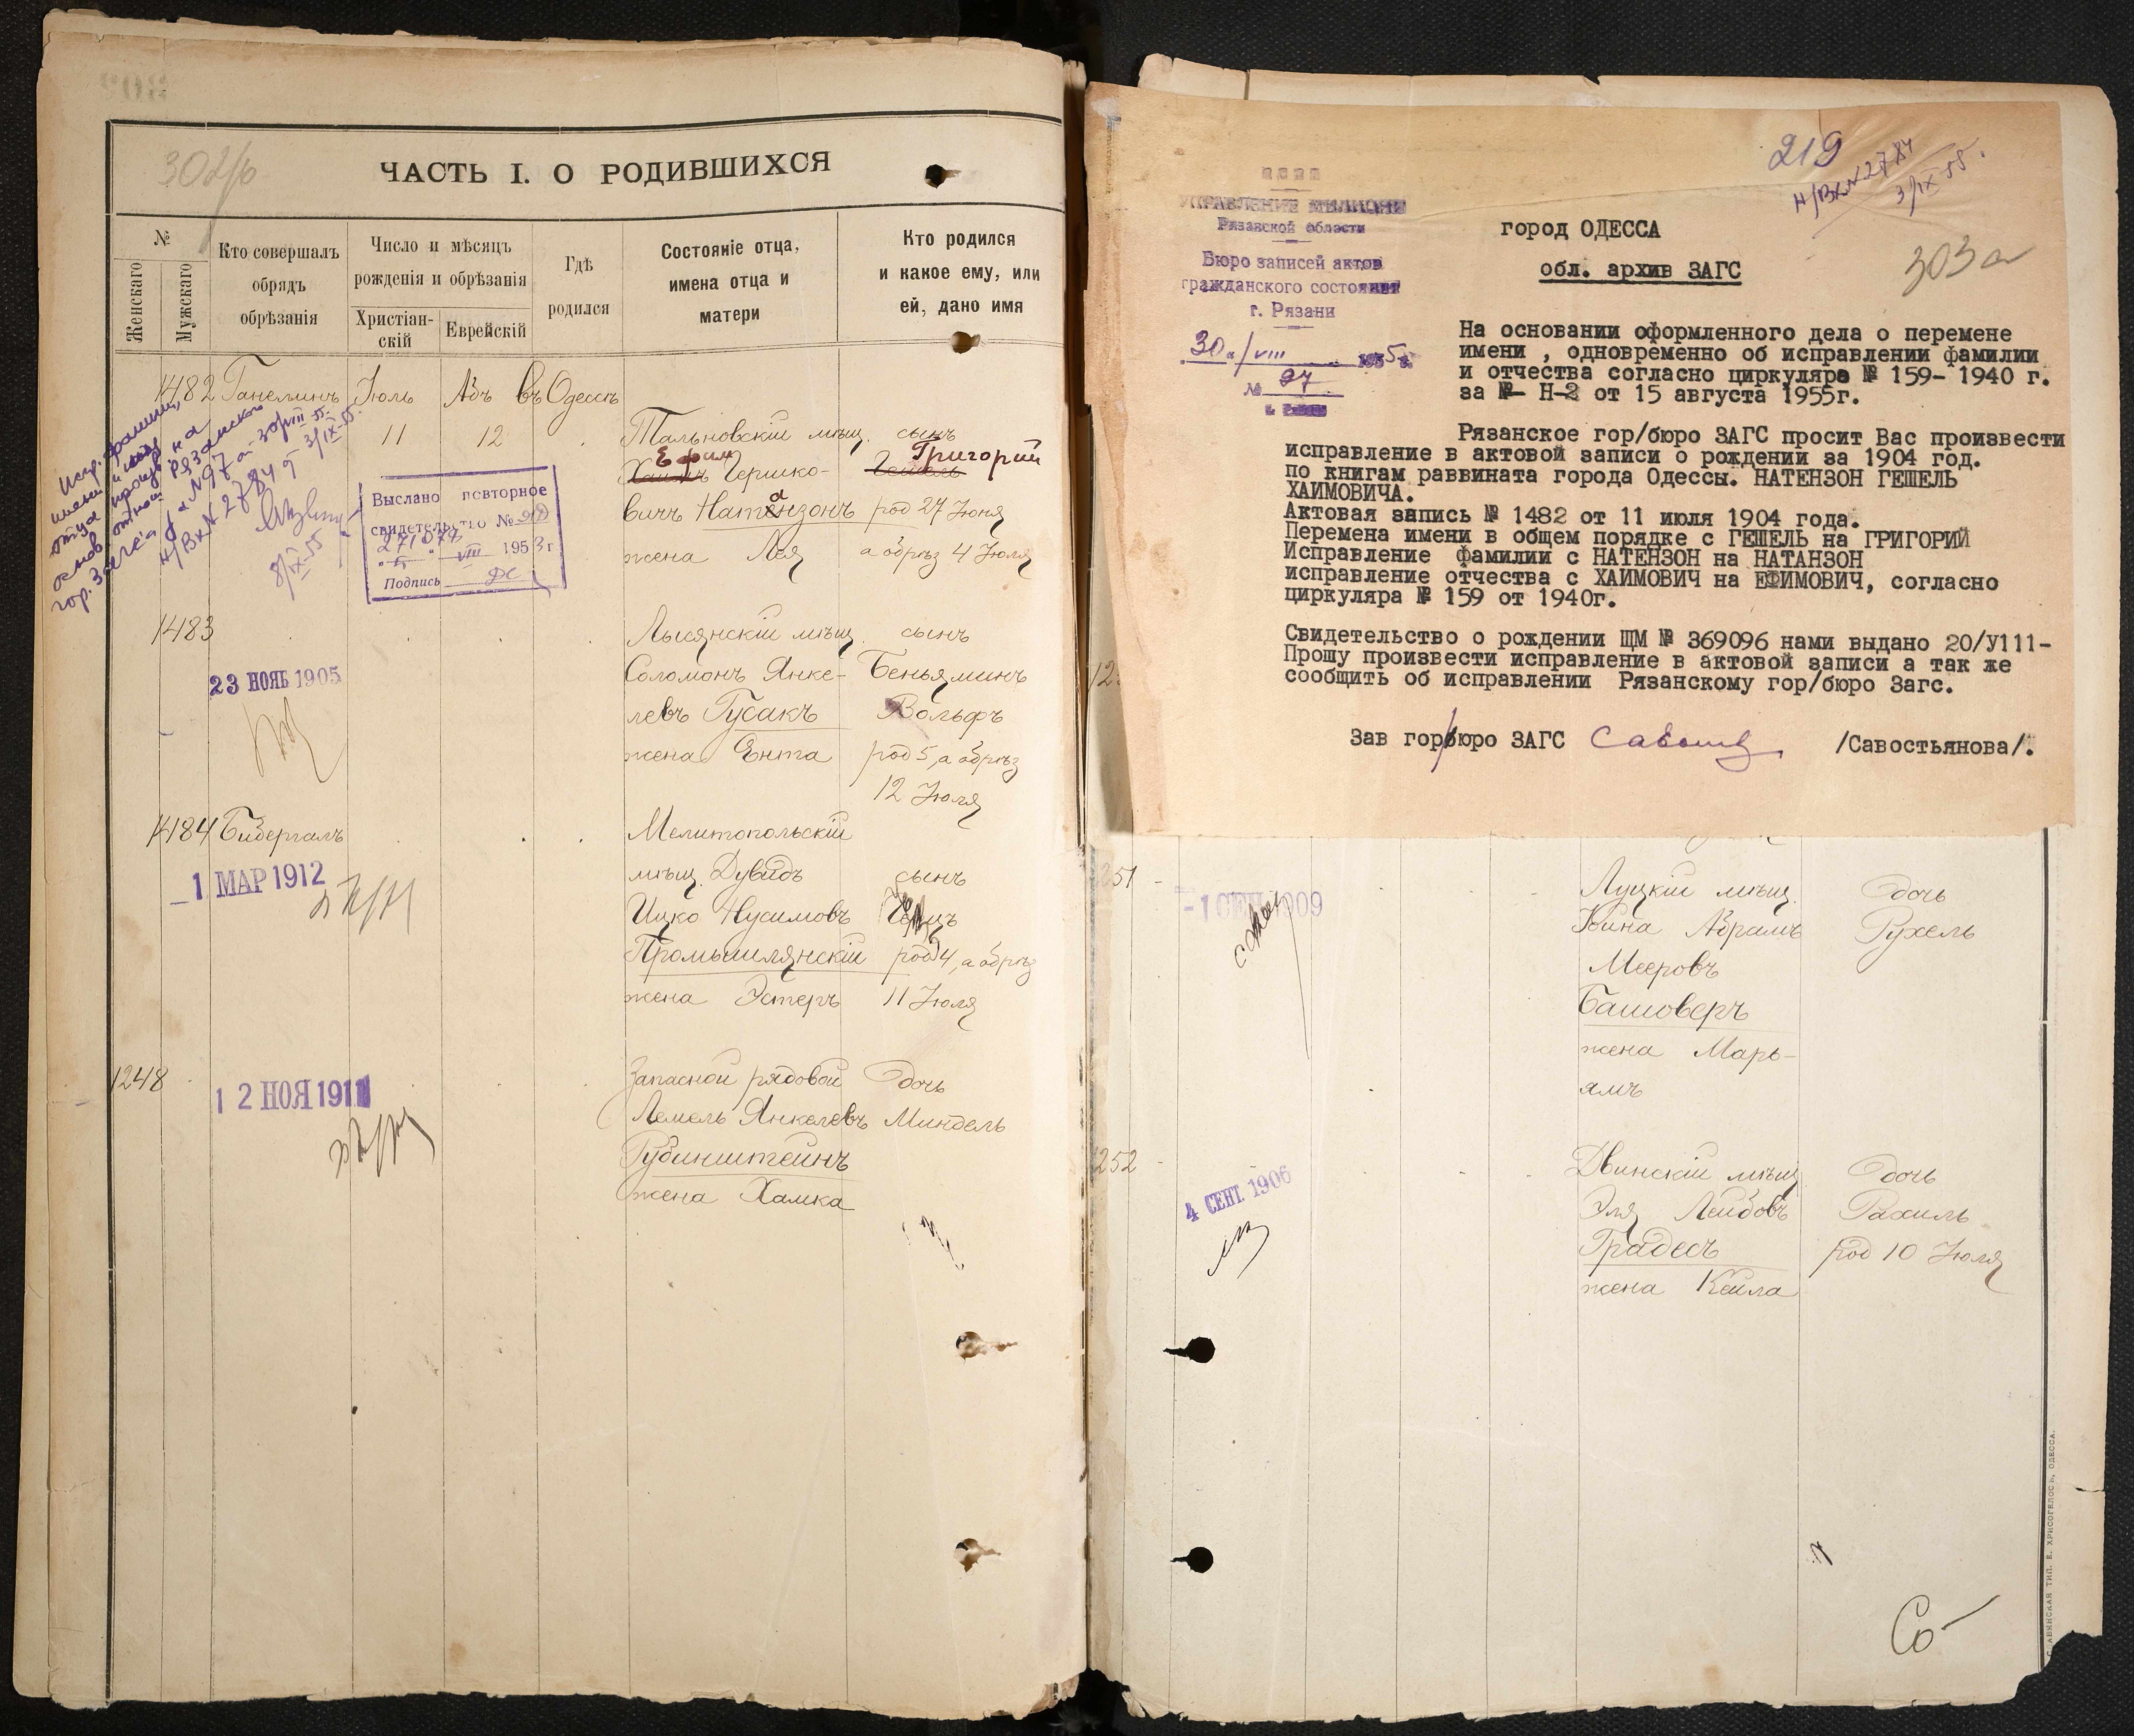 302/б
ЧАСТЬ I. О РОДИВШИХСЯ
№
Женскаго
Мужскаго
Кто совершалъ
обрядъ
обрѣзанія
Число и мѣсяцъ
рожденія и обрѣзанія
Христіан-
скій
Еврейскій
Гдѣ
родился
Состояніе отца,
имена отца и
матери
Кто родился
и какое ему, или
ей, дано имя
1482 Ганелинъ Іюль Авъ въ Одессѣ
11 12
Тальновскій мѣщ. сынъ
Ефим Григорий
Хаимъ Гершко- Гешель
вичъ Натензонъ род 27 Іюня
а
жена Лея а обрѣз 4 Іюля
Испр. фамилии,
имени и
отца
гор. Загса
№ 97 от 30/VIII 55.
Н/Вх № 2784 от 3/IX-55.
8/IX-55
Выслано повторное
свидетельство №
VIII 1953 г
Подпись
1483
Лысянскій мѣщ. сынъ
23 НОЯБ 1905
Соломонъ Янке- Беньяминъ
левъ Гусакъ Вольфъ
жена Ента род 5, а обрѣз
12 Іюля
1484 Бибергалъ
Мелитопольскій
1 МАР 1912
мѣщ. Дувидъ сынъ
Ицко Нусимовъ
Промышлянскій род 4, а обрѣз
жена Эстеръ 11 Іюля
1248
Запасной рядовой дочь
12 НОЯ 1911
Лемель Янкелевъ Миндель
Рубинштейнъ
жена Хамка
219
Н/Вх № 2784
3/IX-55.
303а
УПРАВЛЕНИЕ МИЛИЦИИ
Рязанской области
Бюро записей актов
гражданского состояния
г. Рязани
30/VIII 1955 г.
№ 97
г. Рязань
город ОДЕССА
обл. архив ЗАГС
На основании оформленного дела о перемене
имени , одновременно об исправлении фамилии
и отчества согласно циркуляра № 159- 1940 г.
за №- Н-2 от 15 августа 1955г.
Рязанское гор/бюро ЗАГС просит Вас произвести
исправление в актовой записи о рождении за 1904 год.
по книгам раввината города Одессы. НАТЕНЗОН ГЕШЕЛЬ
ХАИМОВИЧА.
Актовая запись № 1482 от 11 июля 1904 года.
Перемена имени в общем порядке с ГЕШЕЛЬ на ГРИГОРИЙ
Исправление фамилии с НАТЕНЗОН на НАТАНЗОН
исправление отчества с ХАИМОВИЧ на ЕФИМОВИЧ, согласно
циркуляра № 159 от 1940г.
Свидетельство о рождении ЩМ № 369096 нами выдано 20/У111-
Прошу произвести исправление в актовой записи а так же
сообщить об исправлении Рязанскому гор/бюро Загс.
Зав гор/бюро ЗАГС /Савостьянова/.
251
Луцкій мѣщ. дочь
1 СЕН 1909
Абрамъ Рухель
Мееровъ
Башоверъ
жена Марь-
ямъ
252
Двинскій мѣщ. дочь
4 СЕНТ. 1906
Эля Лейбовъ Рахиль
Традесъ род 10 Іюля
жена Кейла
СЛАВЯНСКАЯ ТИП. Е. ХРИСОГЕЛОСЪ, ОДЕССА.